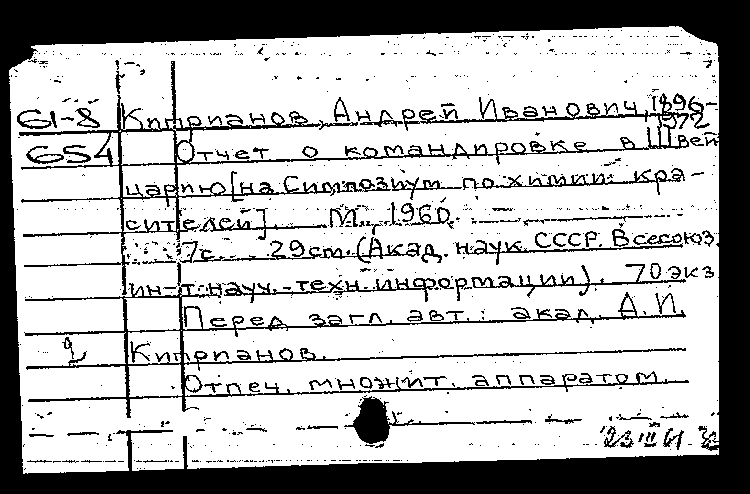 61-8 Киприанов, Андрей Иванович, 1896-
1972
654 Отчет о командировке в Швей
царию [на Симпозиум по химии кра-
сителей]. М., 1960.
7с. 29см. (Акад. наук СССР. Всесоюз.
ин-т науч.-техн. информации). 70 экз
Перед загл. авт.: акад. А. И.
2 Киприанов.
Отпеч. множит. аппаратом.
23 III 61